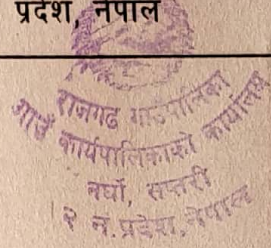 प्रदेश, नेपाल
राजगढ गाउँपालिका
गाउँ कार्यपालिकाको कार्यालय
नर्घो, सप्तरी
२ नं. प्रदेश, नेपाल